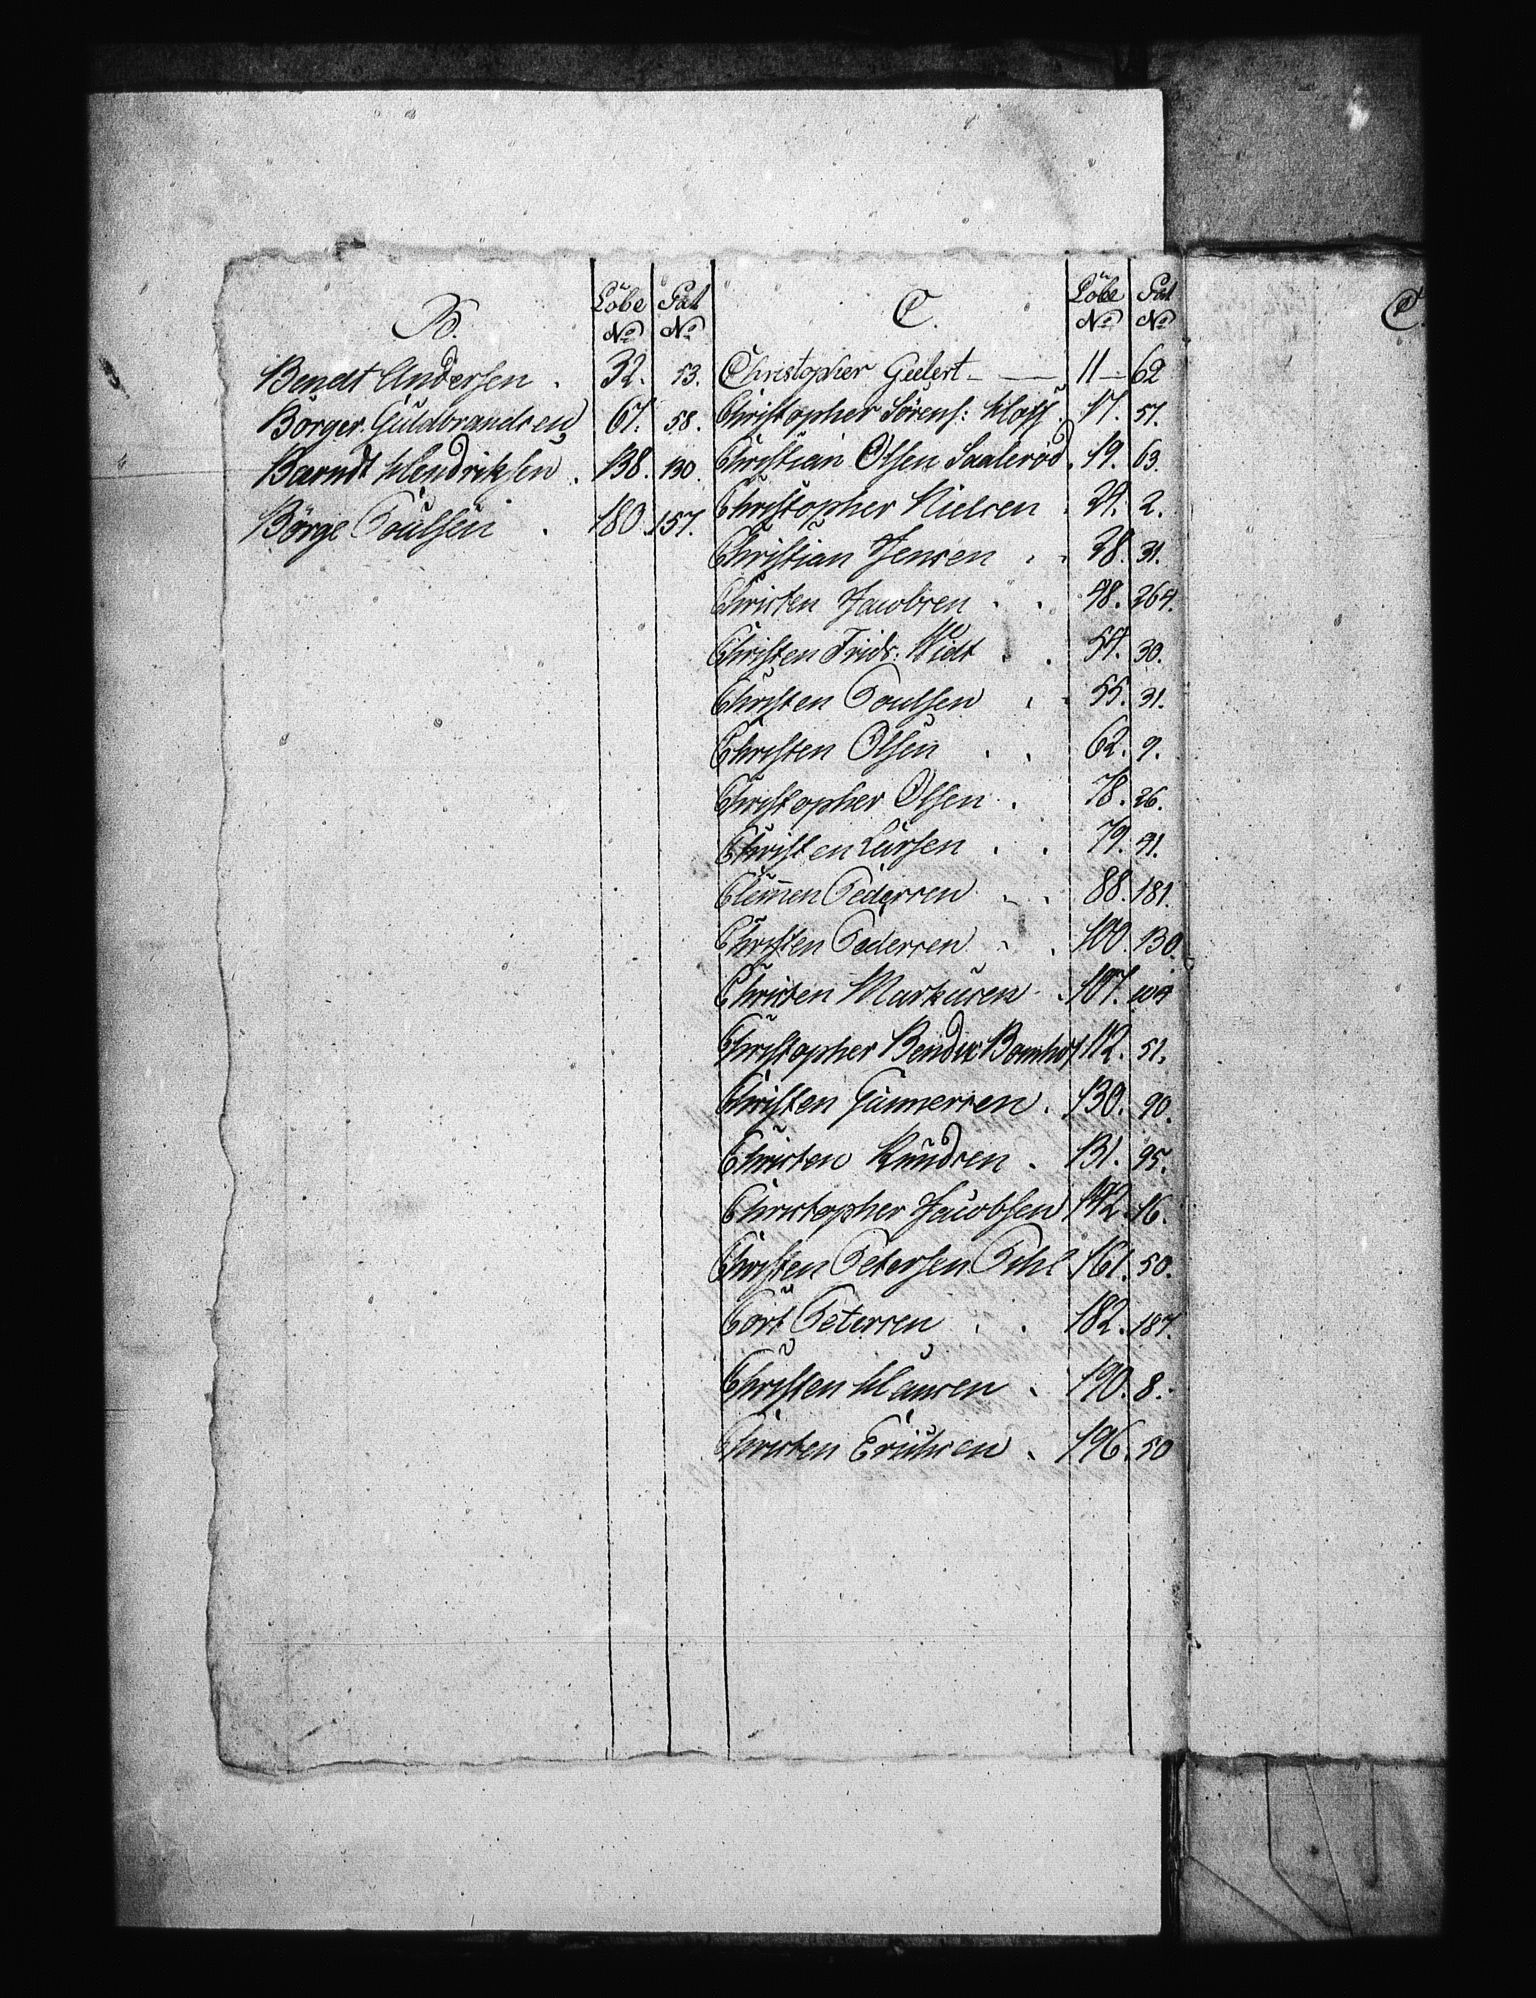 B. Löbe No Pat No
Bendt Andersen . 32. 53.
Börger Guldbrandsen 67. 58.
Barndt Hendriksen . 138. 130.
Börge Poulsen . 180. 157.
C. Löbe No Pat No
Christopher Geelert 11 62
Christopher Sörens: 17. 57.
Christian Olsen Saaleröd . 19. 63.
Christopher Nielsen . 24. 2.
Christian Jensen . . 38. 31.
Christen Jacobsen . . 48. 264.
Christen Frids. Widt . . 54. 30.
Christen Poulsen . . 55. 31.
Christen Olsen . . 62. 9.
Christopher Olsen . 78. 26.
Christen Larsen . . 79. 41.
Clemen Pedersen . . 88. 181.
Christen Pedersen . . 100. 130.
Christen Markusen . 107. 104
Christopher Bendix Bomhof 112. 51.
Christen Gunnersen . 130. 90.
Christen Knudsen . 131. 95.
Christopher Jacobsen 142. 16.
Christen Petersen Pihl 161. 50.
Cort Petersen . . 182. 187.
Christen Hansen . 190. 8.
Christen Erichsen . 196. 50
C.